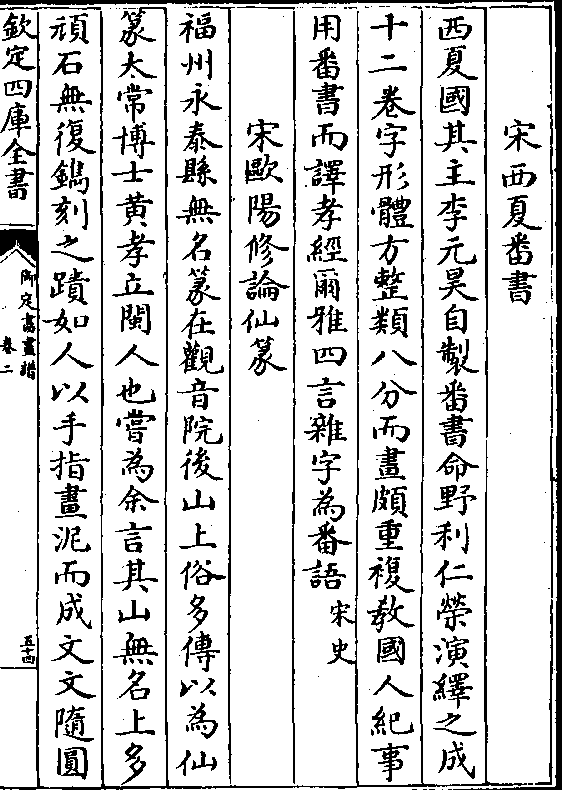 宋西夏番書
西夏國其主李元昊自製番書命野利仁榮演繹之成
十二卷字形體方整類八分而畫頗重複教國人紀事
用番書而譯孝經爾雅四言雜字為番語宋史
宋歐陽修論仙篆
福州永泰縣無名篆在觀音院後山上俗多傳以為仙
篆太常博士黄孝立閩人也嘗為余言其山無名上多
頑石無復鐫刻之蹟如人以手指畫泥而成文文隨圓
欽定四庫全書
御定書畫譜
卷二
五十四